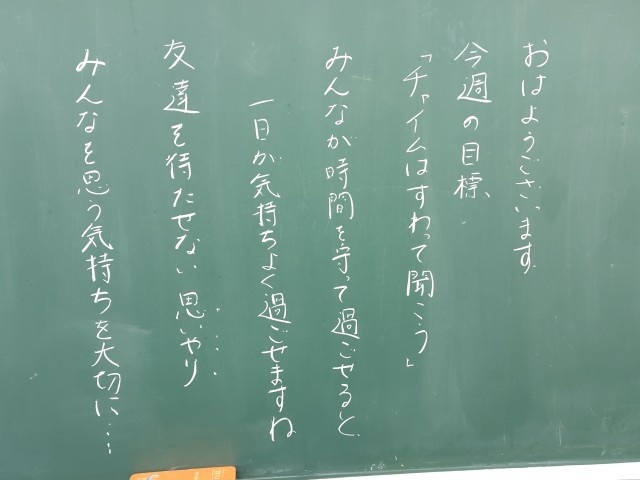 おはようございます
今週の目標、
「チャイムはすわって聞こう」
みんなが時間を守って過ごせると
一日が気持ちよく過ごせますね
友達を待たせない思いやり
みんなを思う気持ちを大切に…